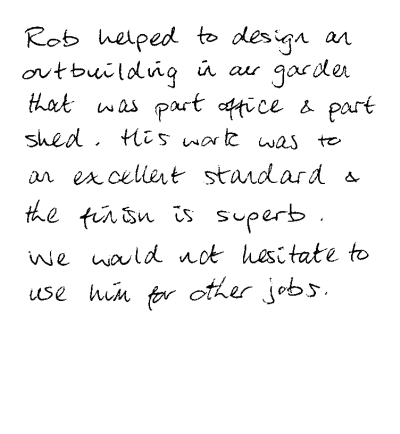 Rob helped to design an
outbuilding in our garden
that was part office & part
shed. His work was to
an excellent standard &
the finish is superb.
We would not hesitate to
use him for other jobs.